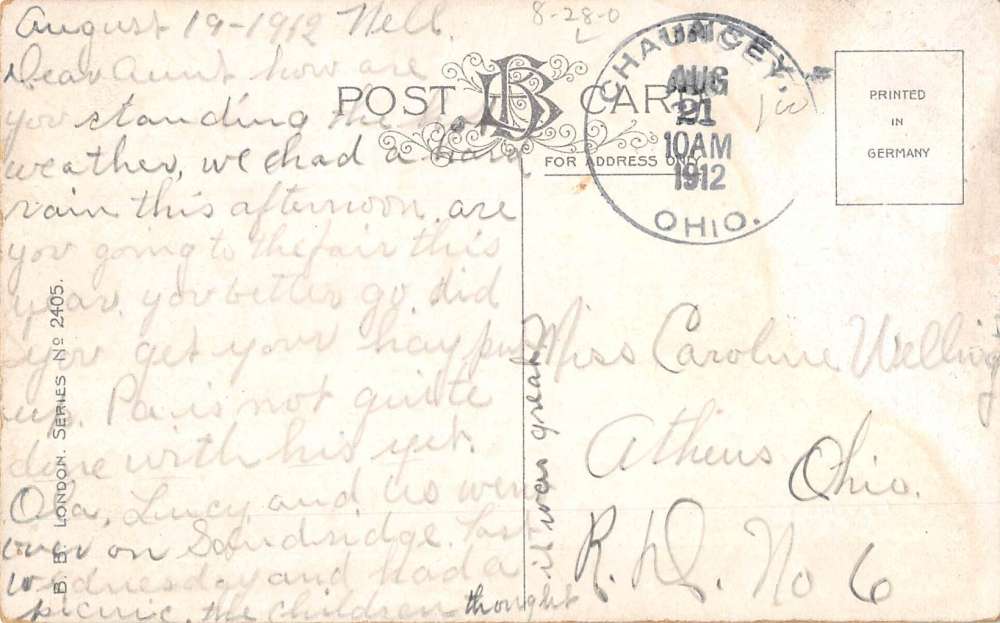 August 19-1912 Nell.
Dear Aunt how are
you standing the
weather, we had a hard
rain this afternoon. are
you going to the fair this
year. you better go. did
you get your hay put
up. Pa is not quite
done with his yet.
Ola, Lucy and us went
over on ridge last
wednesday and had a
picnic. the children thought
it was great
8-28-0
POST CARD
BB
FOR ADDRESS ONLY
CHAUNCEY.
AUG
21
10AM
1912
OHIO.
PRINTED
IN
GERMANY
Miss Caroline Welling
Athens
Ohio.
R.D. No 6
B. B. LONDON. SERIES Nº 2405.